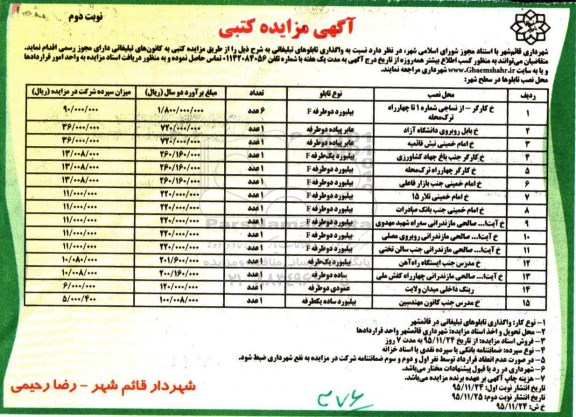 آگهی مزایده کتبی
نوبت دوم
شهرداری قائمشهر با استناد مجوز شورای اسلامی شهر، در نظر دارد نسبت به واگذاری تابلوهای تبلیغاتی به شرح ذیل را از طریق مزایده کتبی به کانون‌های تبلیغاتی دارای مجوز رسمی اقدام نماید.
متقاضیان می‌توانند به منظور کسب اطلاع بیشتر همه‌روزه از تاریخ درج آگهی به مدت یک هفته با شماره تلفن ۰۱۱۴۲۰۸۴۰۵۶ شهرداری تماس حاصل نموده و به منظور دریافت اسناد مزایده به واحد امور قراردادها
و یا به سایت www.Ghaemshahr.ir شهرداری مراجعه نمایند.
محل نصب تابلوها در سطح شهر:
ردیف محل نصب نوع تابلو تعداد مبلغ برآورد دو سال (ریال) میزان سپرده شرکت در مزایده (ریال)
۱ خ کارگر – از نساجی شماره ۱ تا چهارراه ترک‌محله بیلبورد دوطرفه F ۶ عدد ۱/۸۰۰/۰۰۰/۰۰۰ ۹۰/۰۰۰/۰۰۰
۲ خ بابل روبروی دانشگاه آزاد عابر پیاده دوطرفه ۱ عدد ۷۲۰/۰۰۰/۰۰۰ ۳۶/۰۰۰/۰۰۰
۳ خ امام خمینی نبش قائمیه عابر پیاده دوطرفه ۱ عدد ۷۲۰/۰۰۰/۰۰۰ ۳۶/۰۰۰/۰۰۰
۴ خ کارگر جنب باغ جهاد کشاورزی بیلبورد یکطرفه F ۱ عدد ۲۶۰/۱۶۰/۰۰۰ ۱۳/۰۰۸/۰۰۰
۵ خ کارگر چهارراه ترک‌محله بیلبورد دوطرفه F ۱ عدد ۲۶۰/۱۶۰/۰۰۰ ۱۳/۰۰۸/۰۰۰
۶ خ امام خمینی جنب بازار فاعلی بیلبورد دوطرفه F ۱ عدد ۲۶۰/۱۶۰/۰۰۰ ۱۳/۰۰۸/۰۰۰
۷ خ امام خمینی تلار ۱۵ بیلبورد دوطرفه F ۱ عدد ۲۲۰/۰۰۰/۰۰۰ ۱۱/۰۰۰/۰۰۰
۸ خ امام خمینی جنب بانک صادرات بیلبورد دوطرفه F ۱ عدد ۲۲۰/۰۰۰/۰۰۰ ۱۱/۰۰۰/۰۰۰
۹ خ آیت‌ا... صالحی مازندرانی سه‌راه شهید مهدوی بیلبورد دوطرفه F ۱ عدد ۲۲۰/۰۰۰/۰۰۰ ۱۱/۰۰۰/۰۰۰
۱۰ خ آیت‌ا... صالحی مازندرانی روبروی مصلی بیلبورد دوطرفه F ۱ عدد ۲۲۰/۰۰۰/۰۰۰ ۱۱/۰۰۰/۰۰۰
۱۱ خ آیت‌ا... صالحی مازندرانی جنب سالن تختی بیلبورد دوطرفه F ۱ عدد ۲۲۰/۰۰۰/۰۰۰ ۱۱/۰۰۰/۰۰۰
۱۲ خ مدرس جنب ایستگاه راه‌آهن بیلبورد یکطرفه ۱ عدد ۲۰۱/۶۰۰/۰۰۰ ۱۰/۰۸۰/۰۰۰
۱۳ خ آیت‌ا... صالحی مازندرانی چهارراه کفش ملی ساده دوطرفه ۱ عدد ۲۰۰/۱۶۰/۰۰۰ ۱۰/۰۰۸/۰۰۰
۱۴ رینگ داخلی میدان ولایت عمودی دوطرفه ۱ عدد ۱۲۰/۰۰۰/۰۰۰ ۶/۰۰۰/۰۰۰
۱۵ خ مدرس جنب کانون مهندسین بیلبورد ساده یکطرفه ۱ عدد ۱۰۰/۰۰۸/۰۰۰ ۵/۰۰۰/۴۰۰
۱- نوع کار: واگذاری تابلوهای تبلیغاتی در قائمشهر
۲- محل تحویل و اخذ اسناد مزایده: شهرداری قائمشهر واحد قراردادها
۳- فروش اسناد مزایده: از تاریخ ۹۵/۱۱/۲۴ به مدت ۷ روز
۴- نوع سپرده: ضمانتنامه بانکی یا سپرده نقدی یا اسناد خزانه
۵- در صورت عدم انعقاد قرارداد توسط نفر اول و دوم و سوم ضمانتنامه شرکت در مزایده به نفع شهرداری ضبط شود.
۶- شهرداری در رد یا قبول پیشنهادات مختار می‌باشد.
۷- هزینه چاپ آگهی بر عهده برنده مزایده می‌باشد.
تاریخ انتشار نوبت اول: ۹۵/۱۱/۲۴
تاریخ انتشار نوبت دوم: ۹۵/۱۱/۲۵
خ ش: ۹۵/۱۱/۲۴
شهردار قائم شهر - رضا رحیمی
۳۷۶